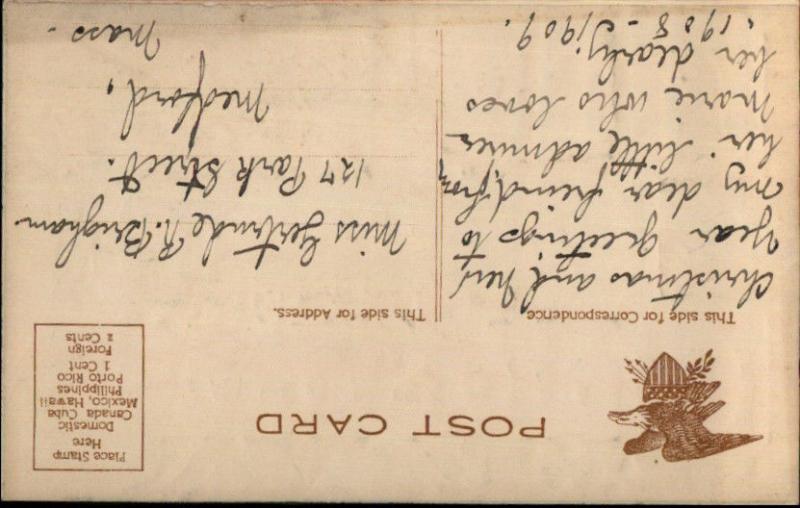 POST CARD
Place Stamp
Here
Domestic
Canada Cuba
Mexico, Hawaii
Philippines
Porto Rico
1 Cent
Foreign
2 Cents
This side for Correspondence
Christmas and New
Year greetings to
my dear freind, from
her little admirer
Marie who loves
her dearly
1908-1909.
This side for Address.
Miss Gertrude R. Brigham
127 Park Street.
Medford,
Mass.